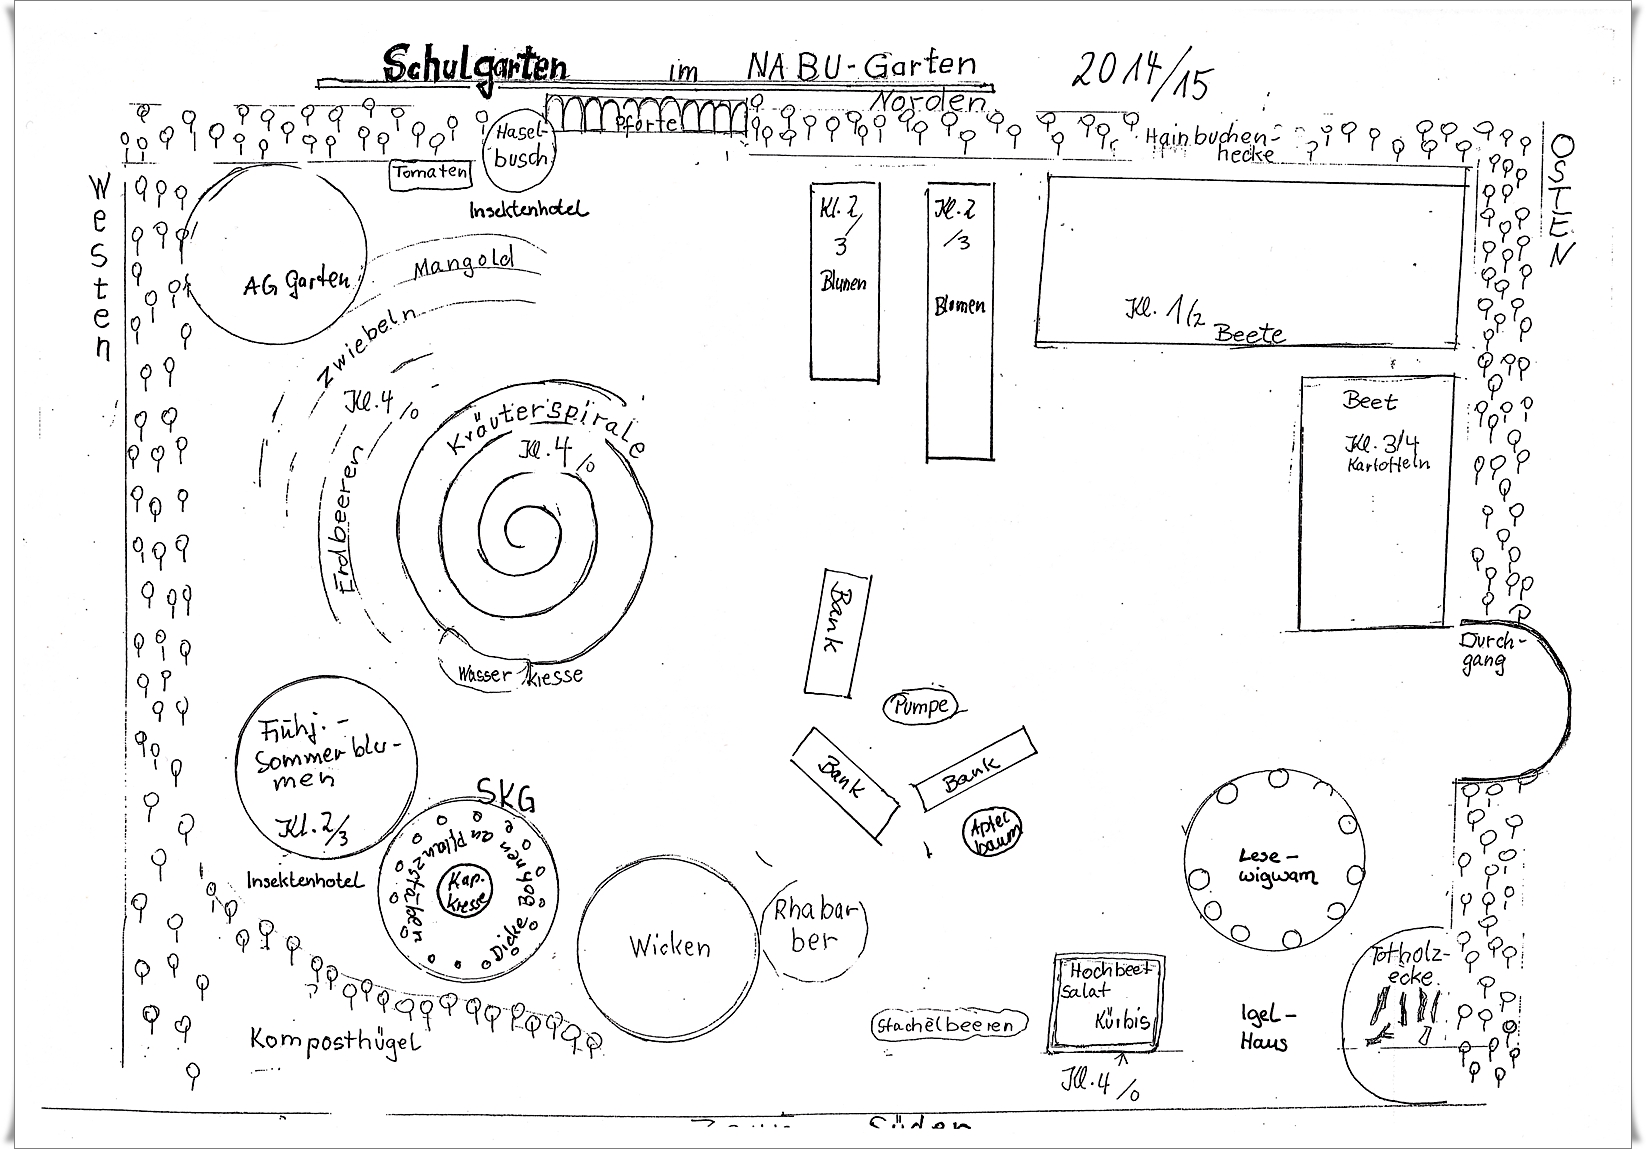 Schulgarten im NABU-Garten 2014/15
Norden
Pforte
Hasel-
busch
Tomaten
Insektenhotel
Hainbuchen-
hecke
OSTEN
Westen
AG Garten
Mangold
Zwiebeln
Kl. 4/0
Erdbeeren
Kräuterspirale
Kl. 4/0
Wasser kresse
Kl. 2/
3
Blumen
Kl. 2
/3
Blumen
Kl. 1/2
Beete
Beet
Kl. 3/4
Kartoffeln
Durch-
gang
Bank
Pumpe
Bank
Bank
Apfel
baum
Frühj.-
Sommerblu-
men
Kl. 2/3
Insektenhotel
SKG
Dicke Bohnen an Pflanzstäben
Kap.
Kresse
Wicken
Rhabar-
ber
Lese-
wigwam
Totholz-
ecke
Igel-
Haus
Hochbeet
Salat
Kürbis
Kl. 4/0
Stachelbeeren
Komposthügel
Süden